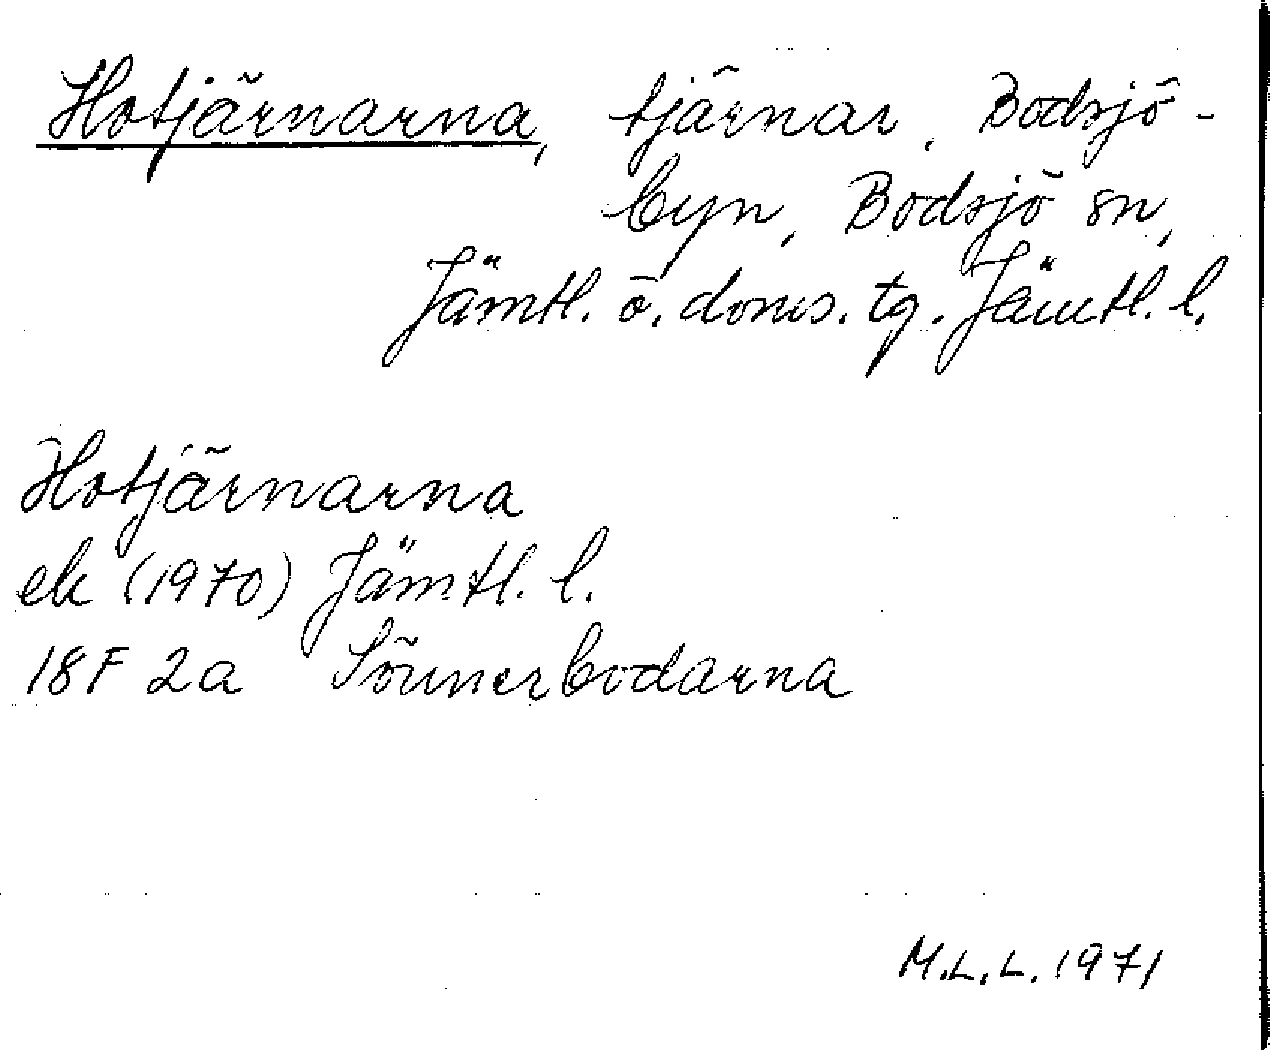 Hotjärnarna, tjärnar, Bodsjö-
byn, Bodsjö sn,
Jämtl. ö. doms. tg. Jämtl. l.
Hotjärnarna
ek (1970) Jämtl. l.
18F 2a Sörmerbodarna
M.L.L. 1971